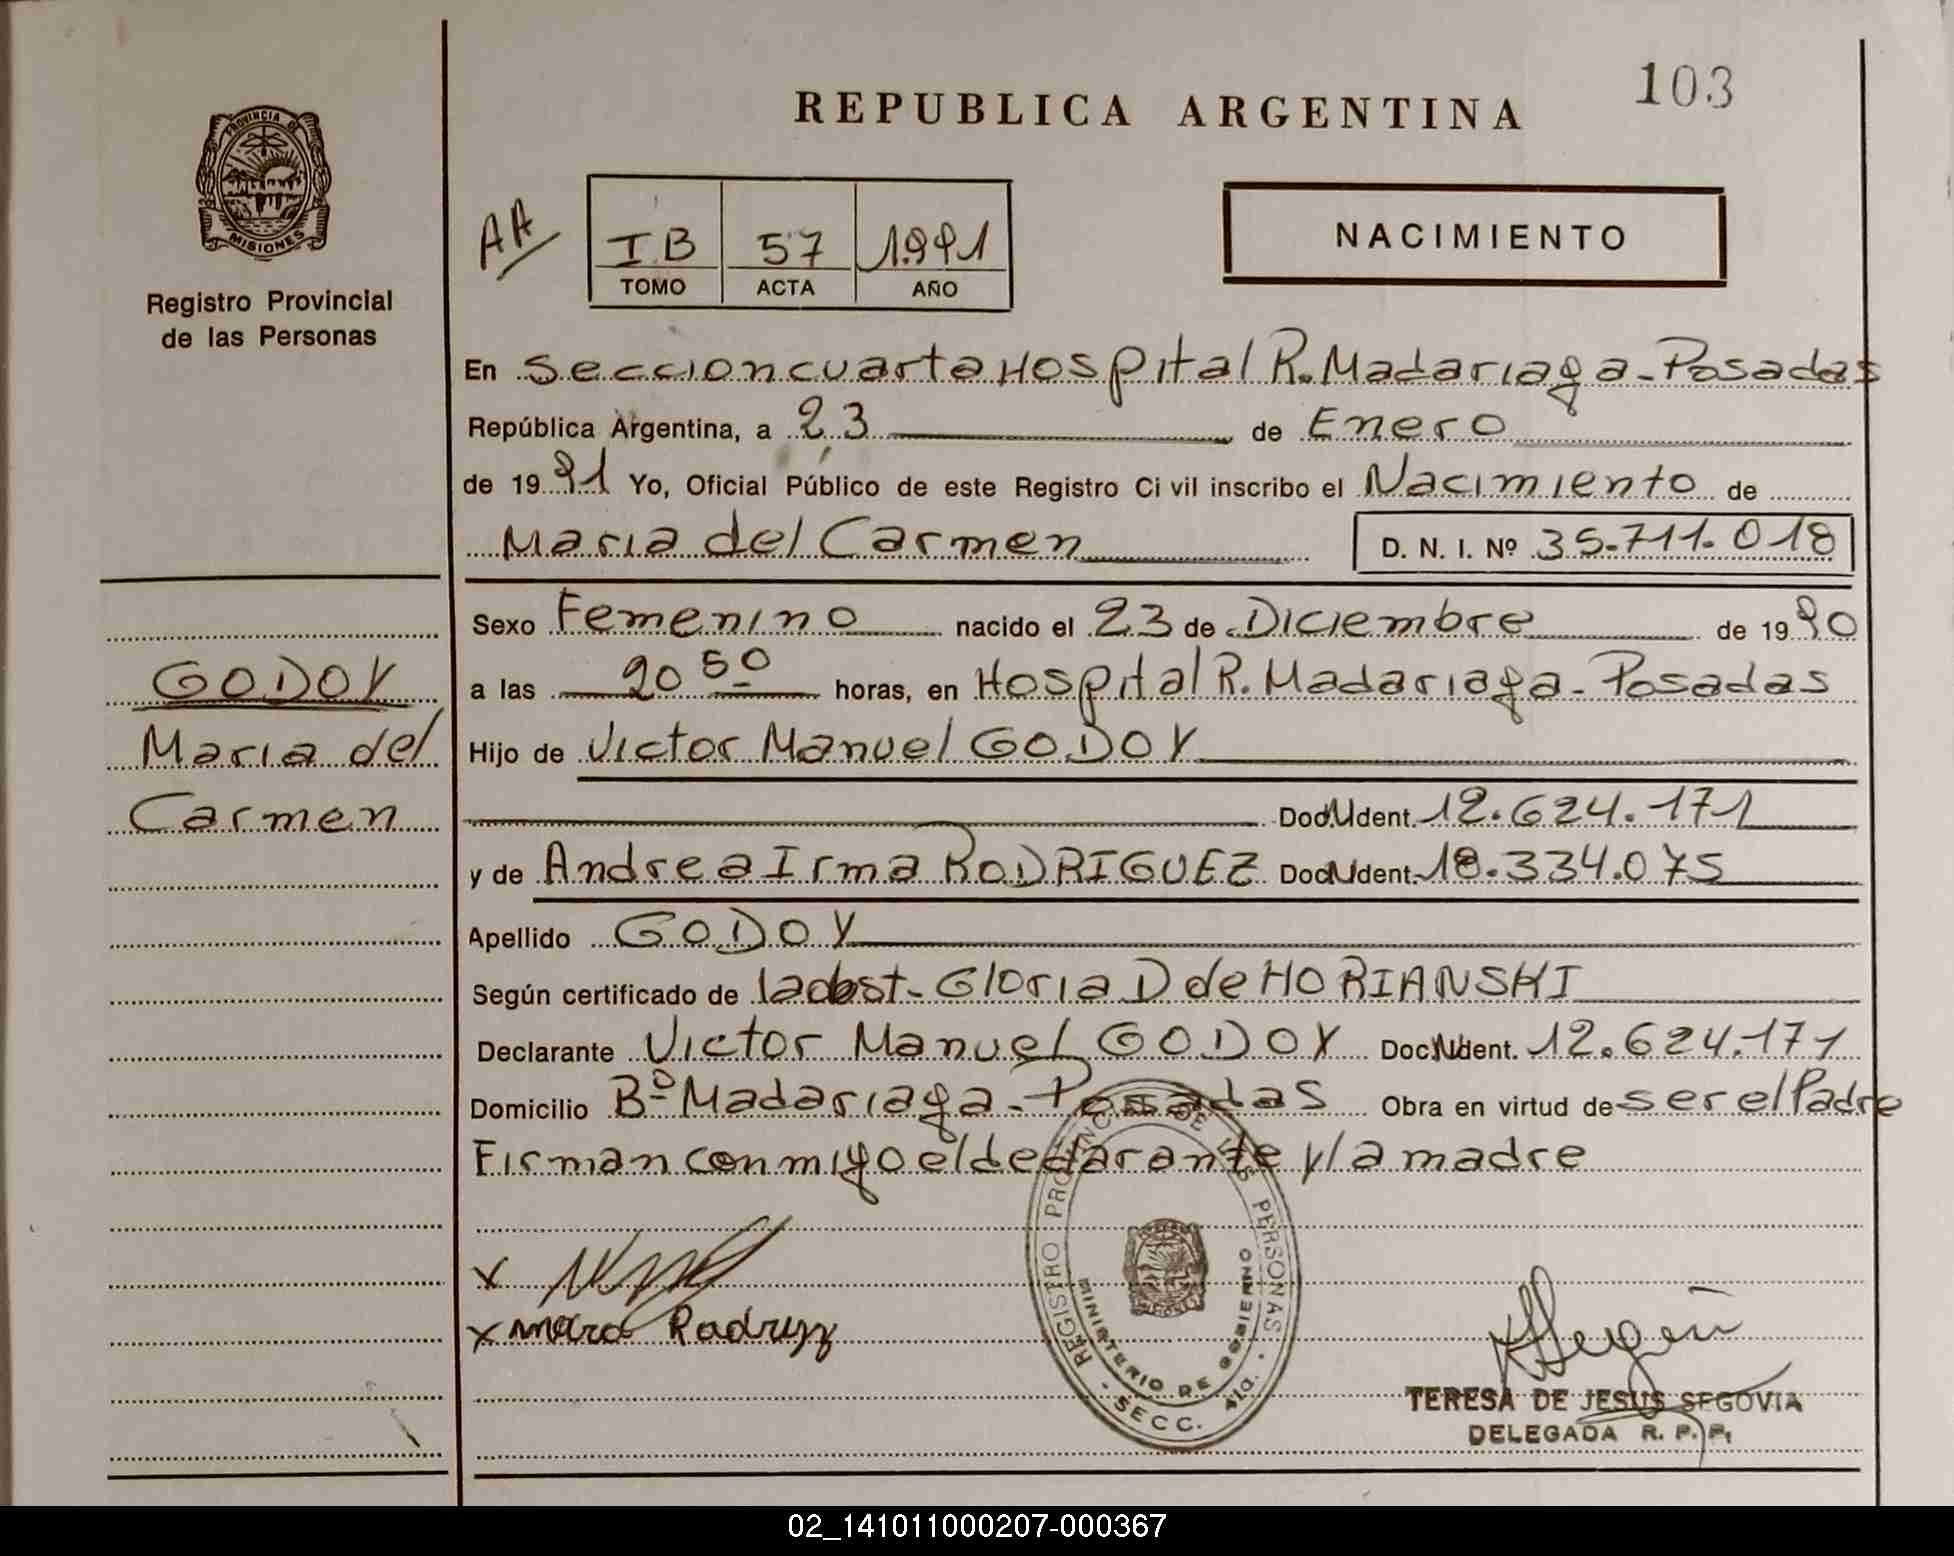 103
REPUBLICA ARGENTINA
PROVINCIA DE
MISIONES
Registro Provincial
de las Personas
AA
I B 57 1991
TOMO ACTA AÑO
NACIMIENTO
En Seccion cuarta Hospital R. Madariaga - Posadas
República Argentina, a 23 de Enero
de 1991 Yo, Oficial Público de este Registro Civil inscribo el Nacimiento de
Maria del Carmen D. N. I. Nº 35.711.018
Sexo Femenino nacido el 23 de Diciembre de 1990
GODOY
Maria del
Carmen
a las 20 50 horas, en Hospital R. Madariaga - Posadas
Hijo de Victor Manuel GODOY
Doc. Ident. 12.624.171
y de Andrea Irma RODRIGUEZ Doc. Ident. 18.334.075
Apellido GODOY
Según certificado de la obst. Gloria D de HORIANSKI
Declarante Victor Manuel GODOY Doc. Ident. 12.624.171
Domicilio Bº Madariaga - Posadas Obra en virtud de ser el Padre
Firman conmigo el declarante y la madre
x
x
REGISTRO PROVINCIAL DE LAS PERSONAS
MINISTERIO DE GOBIERNO
SECC. 4ta.
TERESA DE JESUS SEGOVIA
DELEGADA R. P. P.
02_141011000207-000367